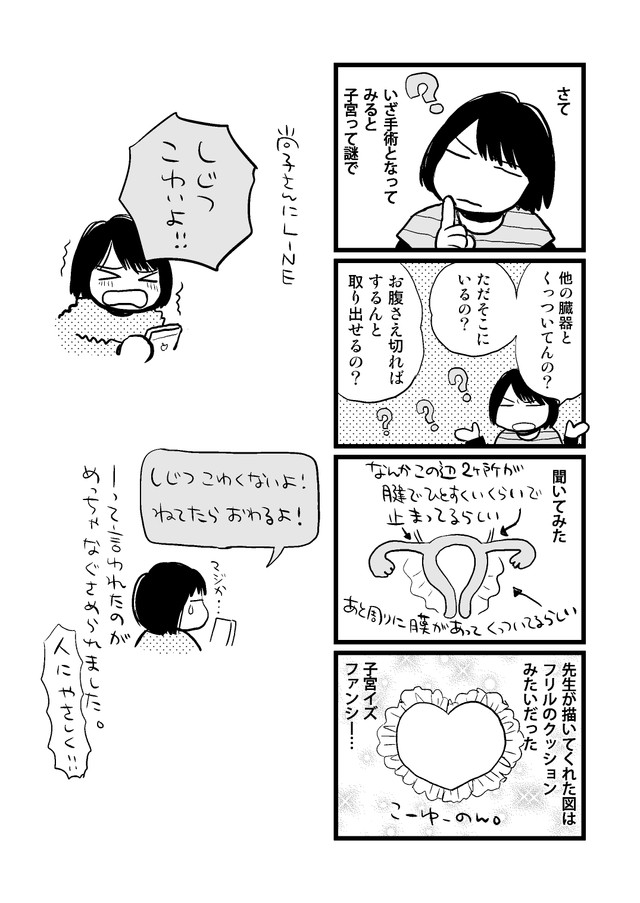 さて
いざ手術となって
みると
子宮って謎で
他の臓器と
くっついてんの？
ただそこに
いるの？
お腹さえ切れば
するんと
取り出せるの？
聞いてみた
なんかこの辺2ヶ所が
腱でひとすくいくらいで
止まってるらしい
あと周りに膜があってくっついてるらしい
先生が描いてくれた図は
フリルのクッション
みたいだった
子宮イズ
ファンシー…
こーゆーのん。
尚子さんにLINE
しじつ
こわいよ!!
しじつ こわくないよ!
ねてたら おわるよ!
マジか…
ーって言われたのが
めっちゃなぐさめられました。
人にやさしく!!